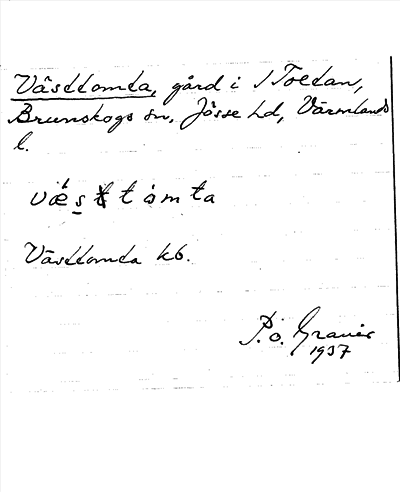 Västtomta, gård i 1 Toetan,
Brunskogs sn, Jösse hd, Värmlands
l.
væ̀s̠t tòmta
Västtomta kb.
P. Ö. Granér
1937